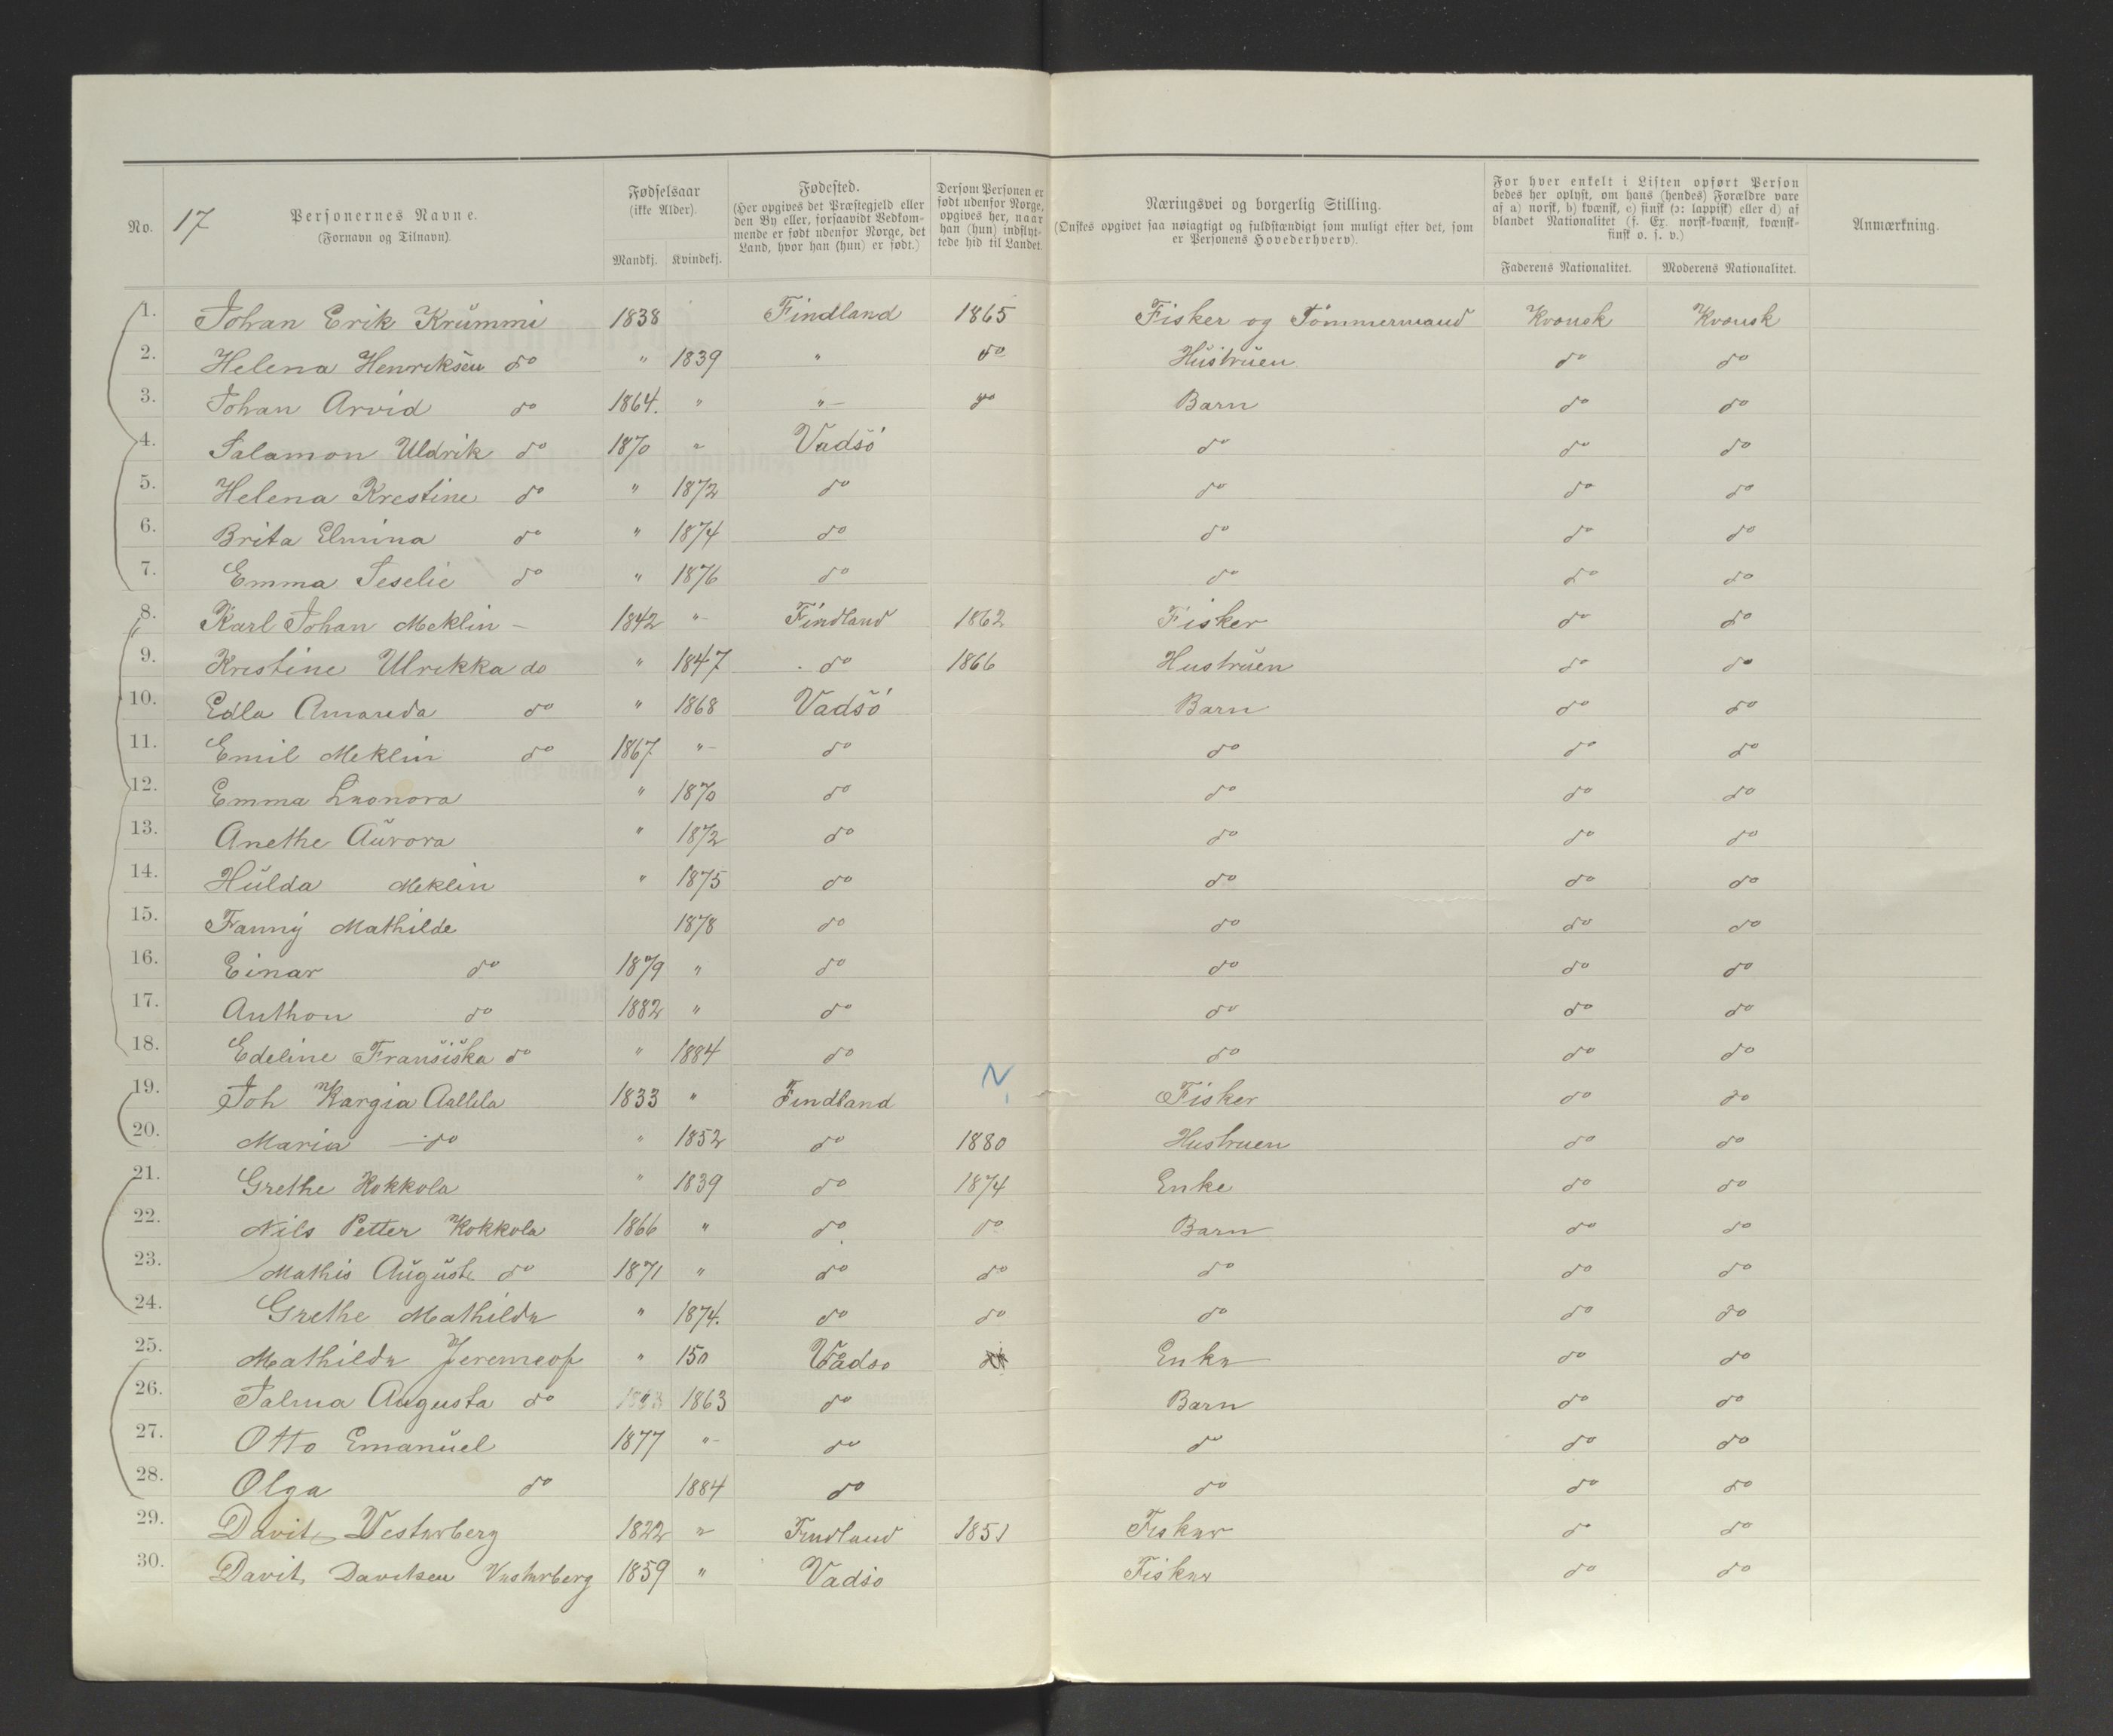 No.
17
Personernes Navne.
(Fornavn og Tilnavn).
Fødselsaar
(ikke Alder).
Mandkj. Kvindekj.
Fødested.
(Her opgives det Præstegjeld eller
den By eller, forsaavidt Vedkom-
mende er født udenfor Norge, det
Land, hvor han (hun) er født.)
Dersom Personen er
født udenfor Norge,
opgives her, naar
han (hun) indflyt-
tede hid til Landet.
Næringsvei og borgerlig Stilling.
(Ønskes opgivet saa nøiagtigt og fuldstændigt som muligt efter det, som
er Personens Hovederhverv).
For hver enkelt i Listen opført Person
bedes her oplyst, om hans (hendes) Forældre vare
af a) norsk, b) kvænsk, c) finsk (ɔ: lappisk) eller d) af
blandet Nationalitet (f. Ex. norsk-kvænsk, kvænsk-
finsk o. s. v.)
Faderens Nationalitet. Moderens Nationalitet.
Anmærkning.
1. Johan Erik Krummi 1838 Findland 1865 Fisker og Tömmermand Kvænsk Kvænsk
2. Helena Henriksen do " 1839 " do Hustruen do do
3. Johan Arvid do 1864. " " do Barn do do
4. Salamon Uldrik do 1870 " Vadsö do do do
5. Helena Krestine do " 1872 do do do do
6. Brita Elmina do " 1874 do do do do
7. Emma Seselie do " 1876 do do do do
8. Karl Johan Meklin - 1842 " Findland 1862 Fisker do do
9. Kristine Ulrikka do " 1847 do 1866 Hustruen do do
10. Edla Amanda do " 1868 Vadsö Barn do do
11. Emil Meklin do 1867 " do do do do
12. Emma Leonora " 1870 do do do do
13. Anethe Aurora " 1872 do do do do
14. Hulda Meklin " 1875 do do do do
15. Fanny Mathilde 1878 do do do do
16. Einar do 1879 " do do do do
17. Anthon do 1882 " do do do do
18. Edeline Fransiska do " 1884 do do do do
19. Joh Kargia 1833 " Findland N Fisker do do
20. Maria do " 1852 do 1880 Hustruen do do
21. Grethe Kokkola " 1839 do 1874 Enke do do
22. Nils Petter Kokkola 1866 " do do Barn do do
23. Mathis August do 1871 " do do do do do
24. Grethe Mathilde " 1874. do do do do do
25. Mathilde " 150 Vadso Enke do do
26. Salma Augusta do 1863 do Barn do do
27. Otto Emanuel 1877 " do do do do
28. Olga do 1884 do do do do
29. Davit Vesterberg 1822 " Findland 1851 Fisker do do
30. Davit Davitsen Vesterberg 1859 " Vadso Fisker do do